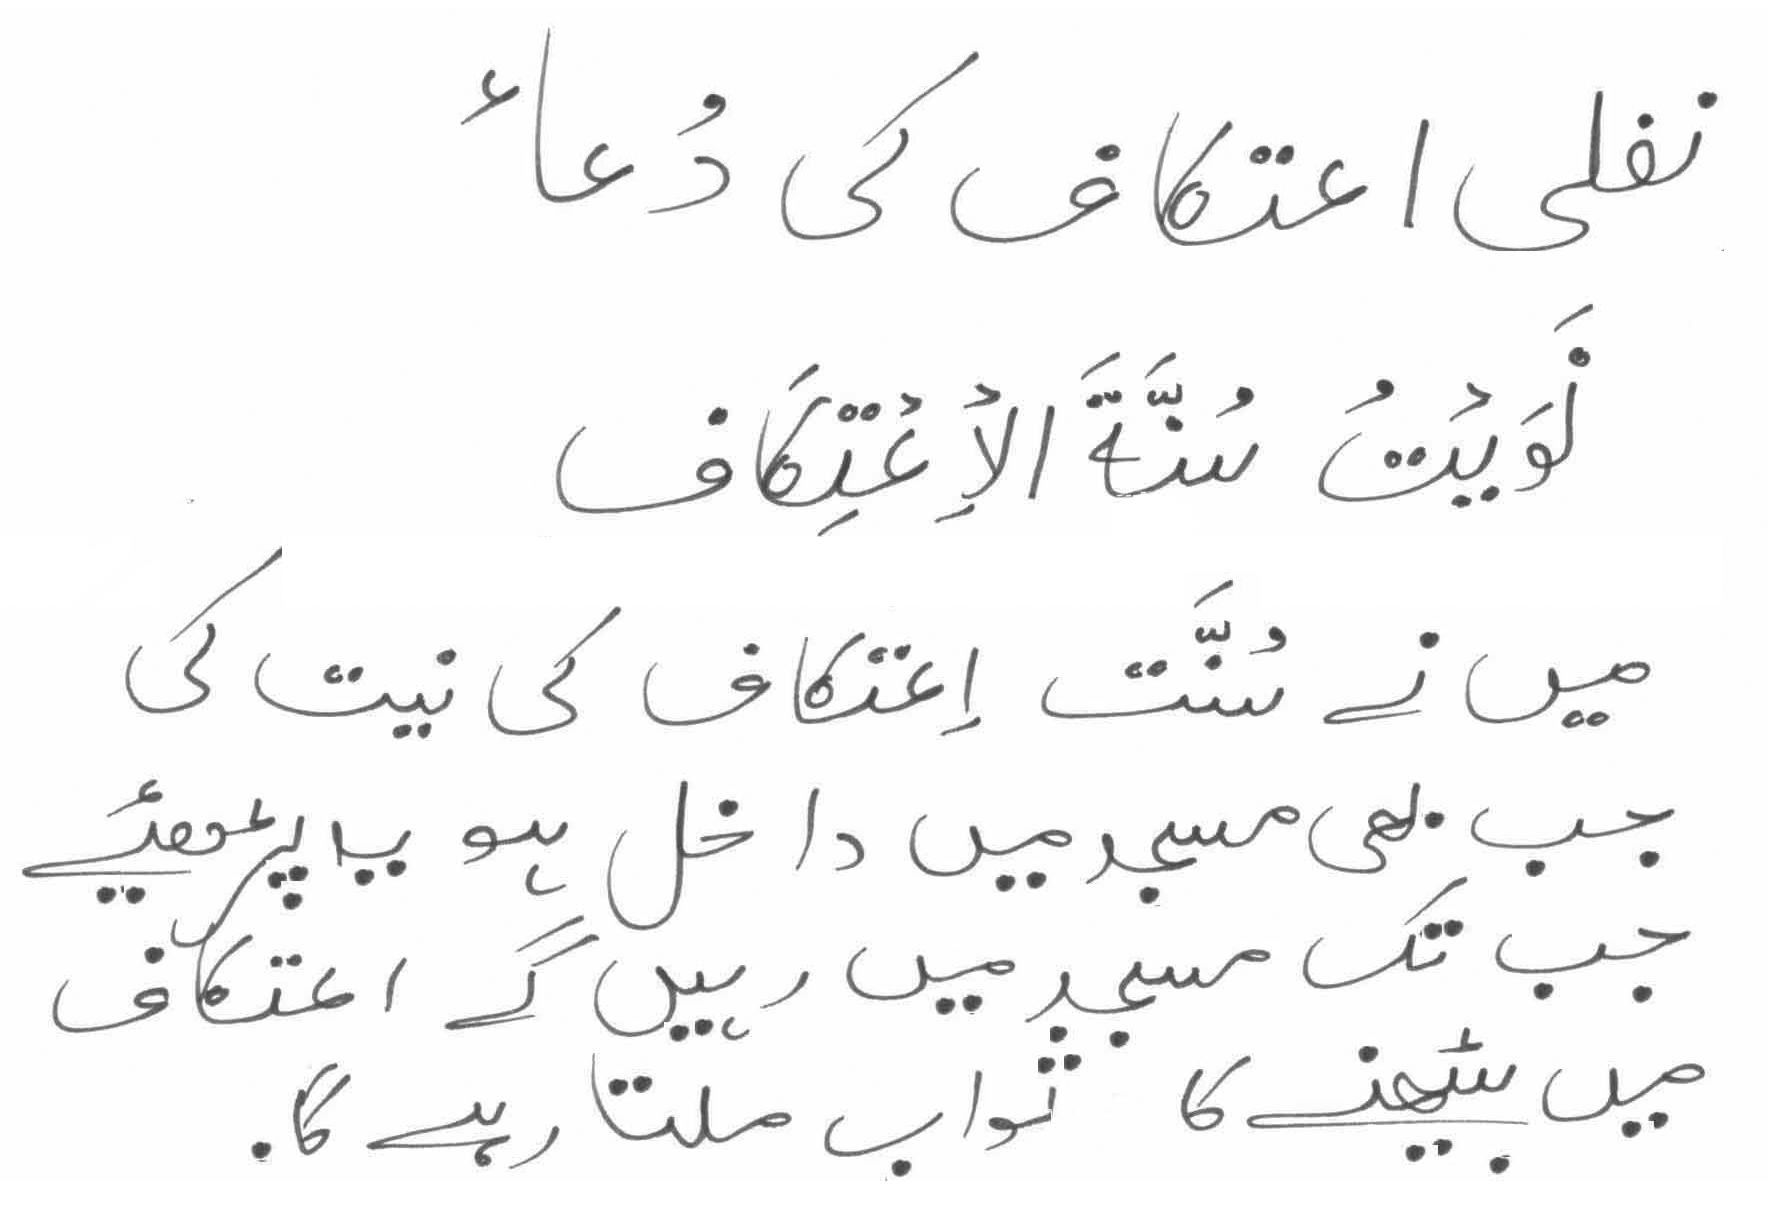 نفلی اعتکاف کی دُعاء
نَوَیْتُ سُنَّۃَ الْاِعْتِکَاف
میں نے سُنَّت اِعتکاف کی نیت کی
جب بھی مسجد میں داخل ہو یہ پڑھئے
جب تک مسجد میں رہیں گے اعتکاف
میں بیٹھنے کا ثواب ملتا رہے گا.